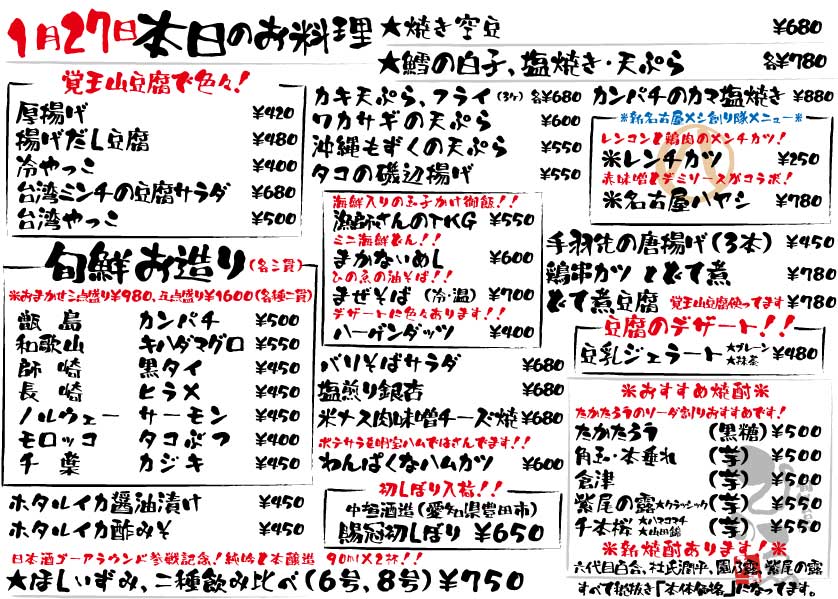 1月27日本日のお料理
★焼き空豆 ¥680
★鱈の白子、塩焼き・天ぷら 各¥780
覚王山豆腐で色々!
厚揚げ ¥420
揚げだし豆腐 ¥480
冷やっこ ¥400
台湾ミンチの豆腐サラダ ¥680
台湾やっこ ¥500
旬鮮お造り(各二貫)
※おまかせ三点盛り¥980、五点盛り¥1600(各種二貫)
甑島 カンパチ ¥500
和歌山 キハダマグロ ¥550
師崎 黒タイ ¥450
長崎 ヒラメ ¥450
ノルウェー サーモン ¥450
モロッコ タコぶつ ¥400
千葉 カジキ ¥450
ホタルイカ醤油漬け ¥450
ホタルイカ酢みそ ¥450
カキ天ぷら、フライ(3ヶ) 各¥680
ワカサギの天ぷら ¥600
沖縄もずくの天ぷら ¥550
タコの磯辺揚げ ¥550
海鮮入りの玉子かけ御飯!!
漁師さんのTKG ¥550
ミニ海鮮どん!!
まかないめし ¥600
ひの魚の油そば!!
まぜそば(冷・温) ¥700
デザートに色々あります!!
ハーゲンダッツ ¥400
バリそばサラダ ¥680
塩煎り銀杏 ¥680
米ナス肉味噌チーズ焼 ¥680
ポテサラを明宝ハムではさんでます!!
わんぱくなハムカツ ¥600
初しぼり入荷!!
中垣酒造(愛知県豊田市)
賜冠初しぼり ¥650
カンパチのカマ塩焼き ¥880
※新名古屋メシ創り隊メニュー※
レンコンと鶏肉のメンチカツ!
※レンチカツ ¥250
赤味噌とデミソースがコラボ!
※名古屋ハヤシ ¥780
手羽先の唐揚げ(3本) ¥450
鶏串カツ とどて煮 ¥780
どて煮豆腐 覚王山豆腐使ってます ¥780
豆腐のデザート!!
豆乳ジェラート ★プレーン ★抹茶 ¥480
※おすすめ焼酎※
たかたろうのソーダ割りおすすめです!
たかたろう (黒糖) ¥500
角玉・本垂れ (芋) ¥500
倉津 (芋) ¥500
紫尾の露★クラッシック(芋) ¥550
千本桜 ★ハマコマチ ★山田錦 (芋) ¥550
※新焼酎あります!※
六代目百合、杜氏潤平、園乃露、紫尾の露
すべて税抜き「本体価格」になってます。
日本酒ゴーアラウンド参戦記念!純吟と本醸造 90ml×2杯!!
★ほしいずみ、二種飲み比べ(6号、8号) ¥750